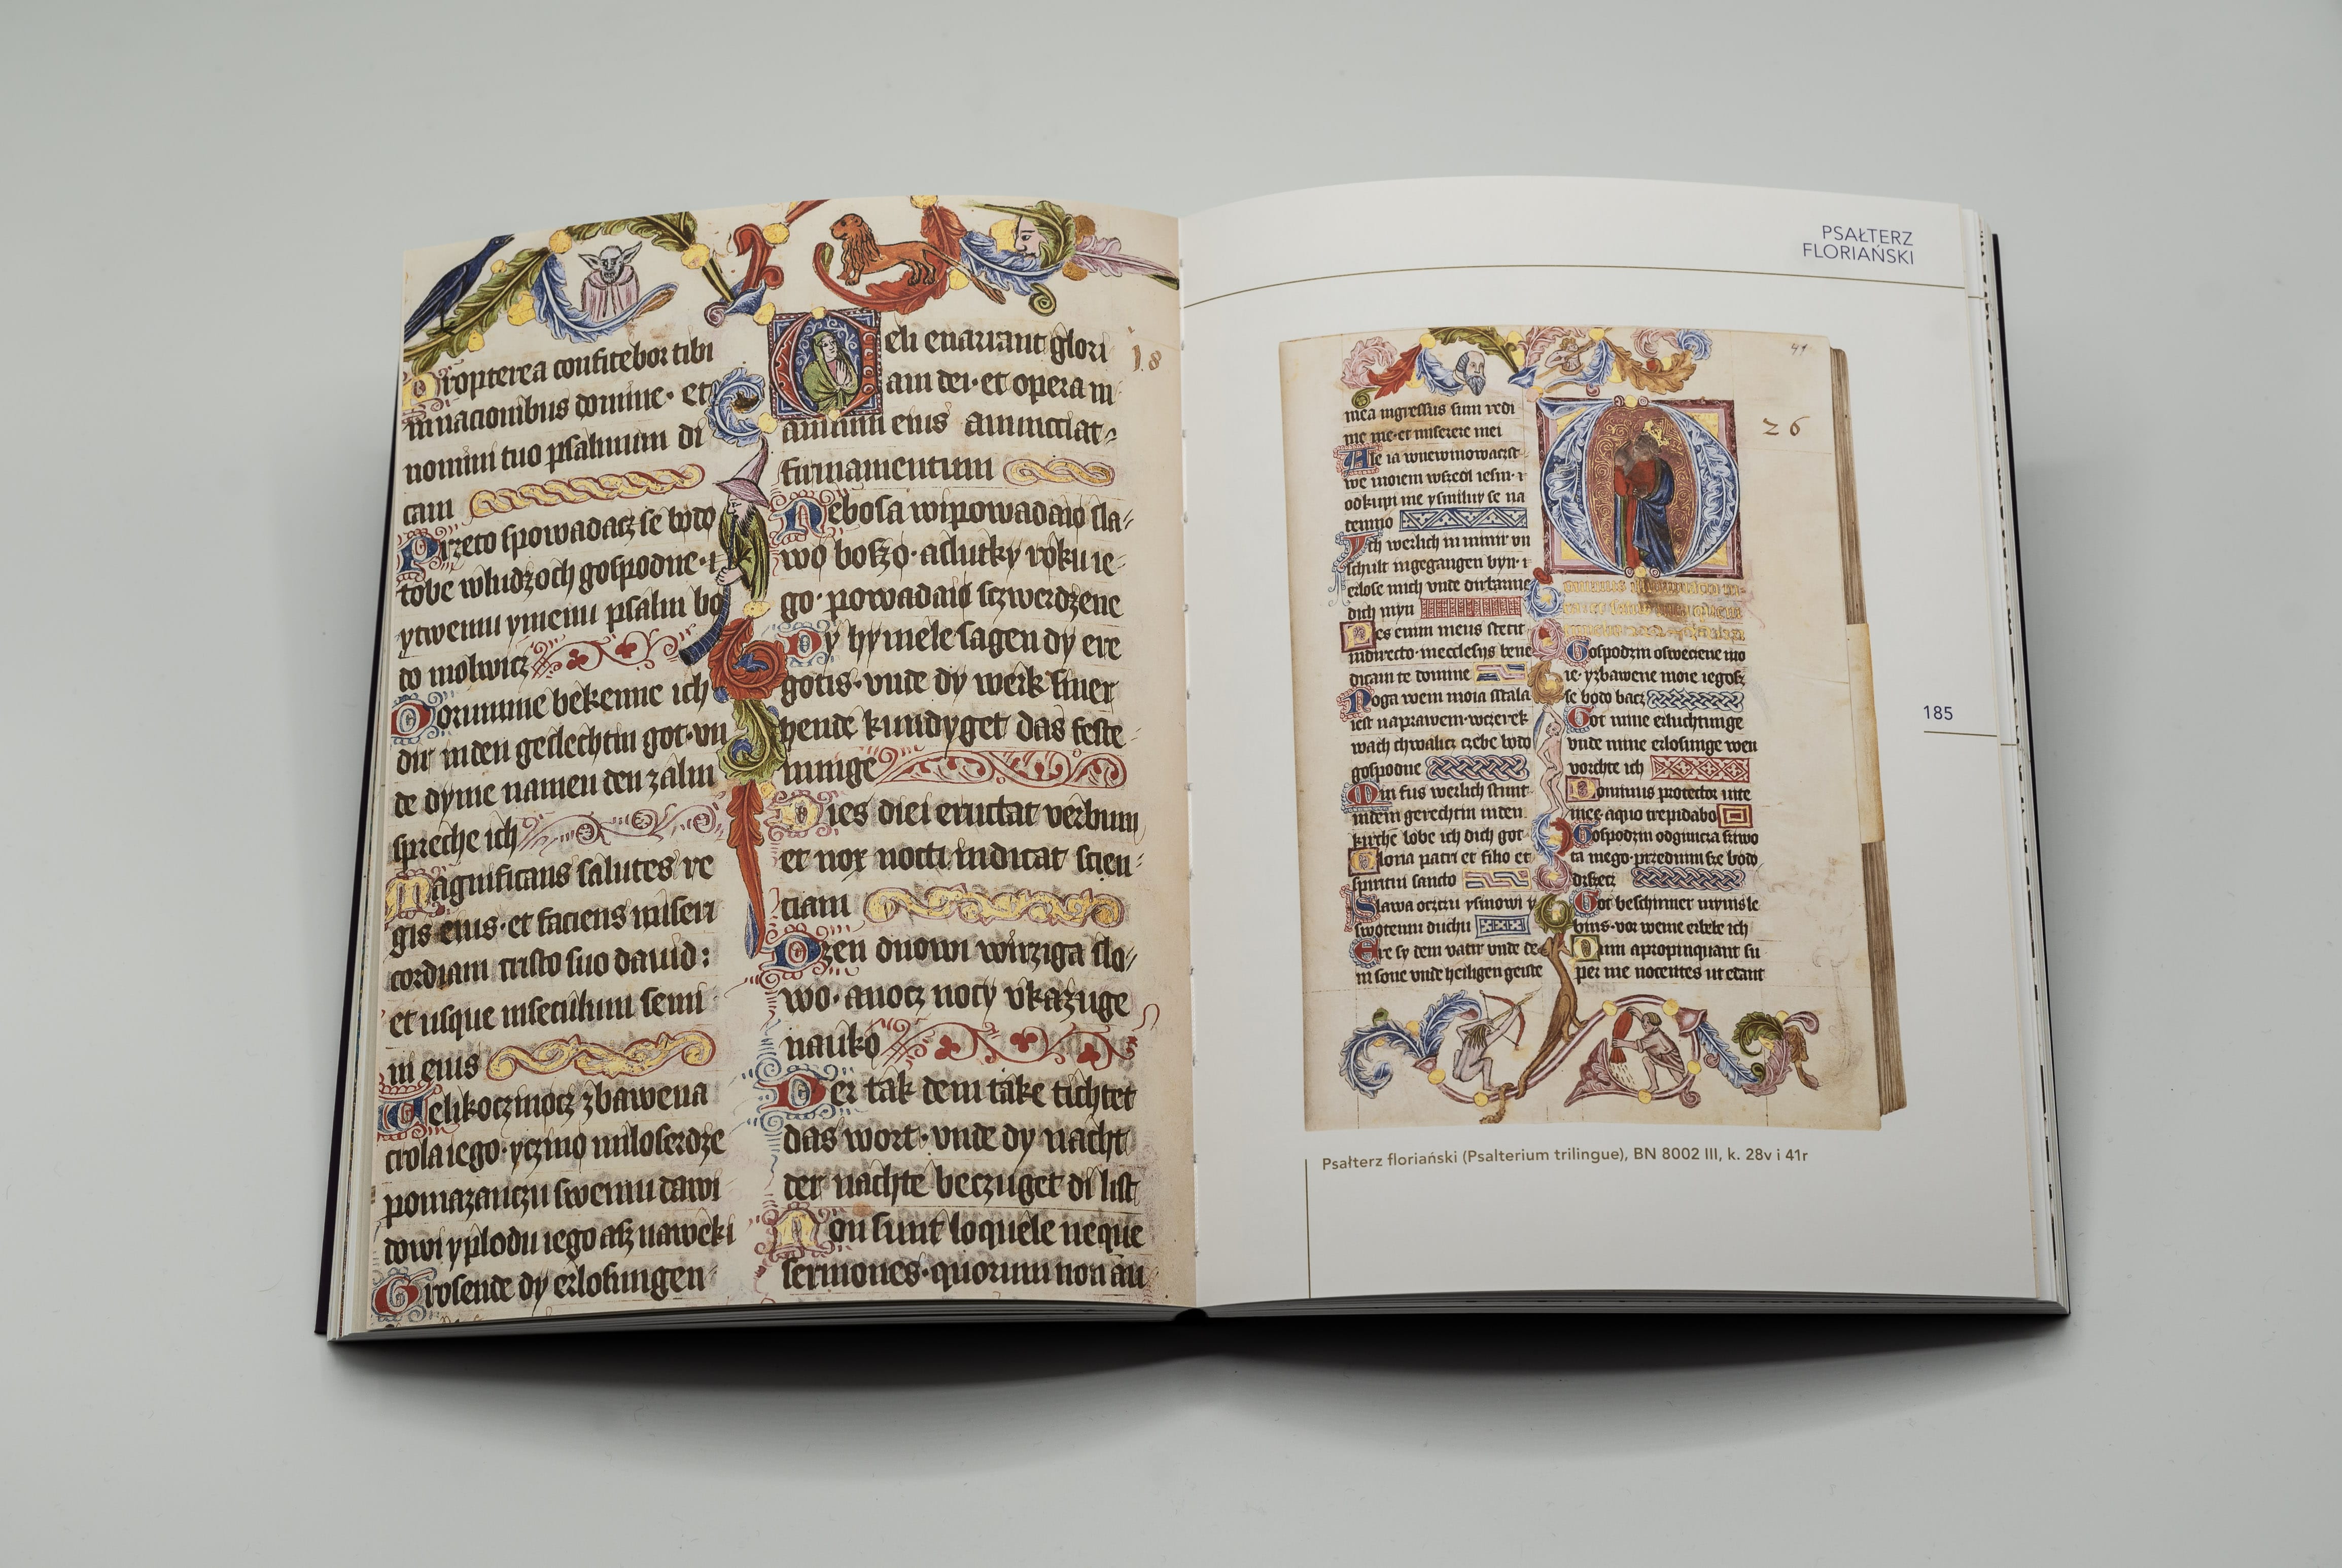 Propterea confitebor tibi
in nacionibus domine · et
nomini tuo psalmum di
cam
Przeto spowadacz se bódó
tobe w ludzoch gospodne · i
ytwemu ymenu psalm bó
dó molwicz
Dorumme bekenne ich
dir in den geslechtin got · vn
de dyme namen den zalm
spreche ich
Magnificans salutes re
gis eius · et faciens miseri
cordiam cristo suo dauid :
et usque in seculum semi
ni eius
Welikoczinócz zbawena
crola iego · yczinó miloserdze
pomazanczu swemu dawi
dowi y plodu iego asz naweki
Grosende dy erlosungen
Celi enarrant glori
18
am dei · et opera m
anuum eius annucciat
firmamentum
Nebosa wipowadaió sla
wó boszó · a skutky róku ie
go · powadaió sczwerdzene
Dy hymele sagen dy ere
gotis · vnde dy werk siner
hende kundyget das feste
nunge
Dies diei eructat verbum
et nox nocti indicat scien
ciam
Dzen dnowi wirziga slo
wo · a nocz nocy vkazuge
naukó
Der tak dem take tichtet
das wort · vnde dy nacht
der nachte beczuget di list
Non sunt loquele neque
sermones · quorum non au
PSAŁTERZ
FLORIAŃSKI
41
26
mea ingressus sum redi
me me · et miserere mei
Ale ia w newinowacst
we moiem wszedl iesm · i
odkupi mie y smiluy se na
demnó
Ich werlich in minir vn
schult ingegangen byn · i
erlose mich vnde dirbarme
dich myn
Pes enim meus stetit
in directo · in ecclesiis bene
dicam te domine
Noga wem moia stala
iest na prawem · w czerek
wach chwalicz czebe bódó
gospodne
Min fus werlich stunt
in dem gerechtin in den
kirche lobe ich dich got
Gloria patri et filio et
spiritui sancto
Slawa oczczu y sinowi y
swótemu duchu
Ere sy dem vatir vnde de
m sone vnde heiligen geiste
Gospodzin oswecene mo
ie · y zbawene moie iegosz
se bódó bacz
Got mine erluchtunge
vnde mine erlosunge wen
vorchte ich
Dominus protector vite
mee · a quo trepidabo
Gospodzin odgimcza sziwo
ta mego · przed nim sze bódó
drszecz
Got beschirmer mynis le
bins · vor weme erbebe ich
Dum apropinquant su
per me nocentes ut edant
185
Psałterz floriański (Psalterium trilingue), BN 8002 III, k. 28v i 41r